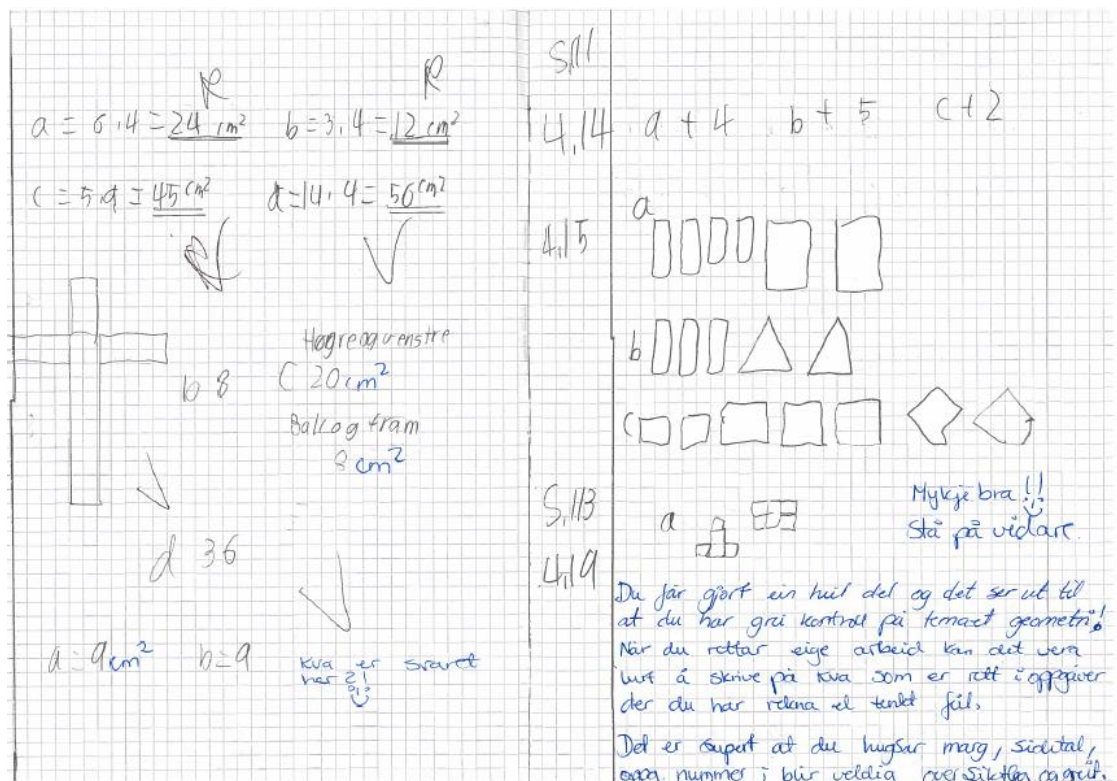 R R
a = 6.4 = 24 cm² b = 3.4 = 12 cm²
c = 5.9 = 45 cm² d = 14.4 = 56 cm²
R
Høgre og venstre
b 8 C 20 cm²
Bak og fram
8 cm²
d 36
a = 9 cm² b = 9
kva er svaret
her?!
S,111
4,14 a + 4 b + 5 c + 2
4,15 a
b
c
S,113
a
4,19
Mykje bra!!
Stå på vidare.
Du får gjort ein heil del og det ser ut til
at du har grei kontroll på temaet geometri!
Når du rettar eige arbeid kan det vera
lurt å skrive på kva som er rett i oppgåver
der du har rekna el tenkt feil.
Det er supert at du hugsar marg, sidetal,
oppg. nummer i blir veldig oversiktleg og greit